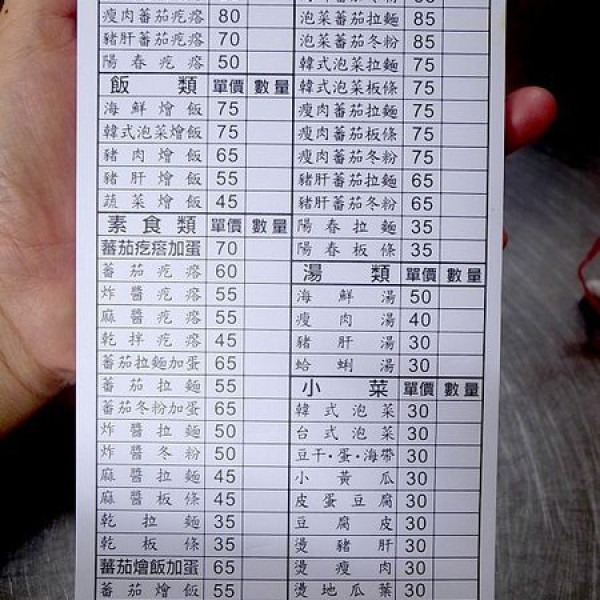 瘦肉蕃茄疙瘩 80
豬肝蕃茄疙瘩 70
陽春疙瘩 50
飯類 單價 數量
海鮮燴飯 75
韓式泡菜燴飯 75
豬肉燴飯 65
豬肝燴飯 55
蔬菜燴飯 45
素食類 單價 數量
蕃茄疙瘩加蛋 70
蕃茄疙瘩 60
炸醬疙瘩 55
麻醬疙瘩 55
乾拌疙瘩 45
蕃茄拉麵加蛋 65
蕃茄拉麵 55
蕃茄冬粉加蛋 65
炸醬拉麵 50
炸醬冬粉 50
麻醬拉麵 45
麻醬板條 45
乾拉麵 35
乾板條 35
蕃茄燴飯加蛋 65
蕃茄燴飯 55
泡菜蕃茄拉麵 85
泡菜蕃茄冬粉 85
韓式泡菜拉麵 75
韓式泡菜板條 75
瘦肉蕃茄拉麵 75
瘦肉蕃茄板條 75
瘦肉蕃茄冬粉 75
豬肝蕃茄拉麵 65
豬肝蕃茄冬粉 65
陽春拉麵 35
陽春板條 35
湯類 單價 數量
海鮮湯 50
瘦肉湯 40
豬肝湯 30
蛤蜊湯 30
小菜 單價 數量
韓式泡菜 30
台式泡菜 30
豆干·蛋·海帶 30
小黃瓜 30
皮蛋豆腐 30
豆腐皮 30
燙豬肝 30
燙瘦肉 30
燙地瓜葉 30